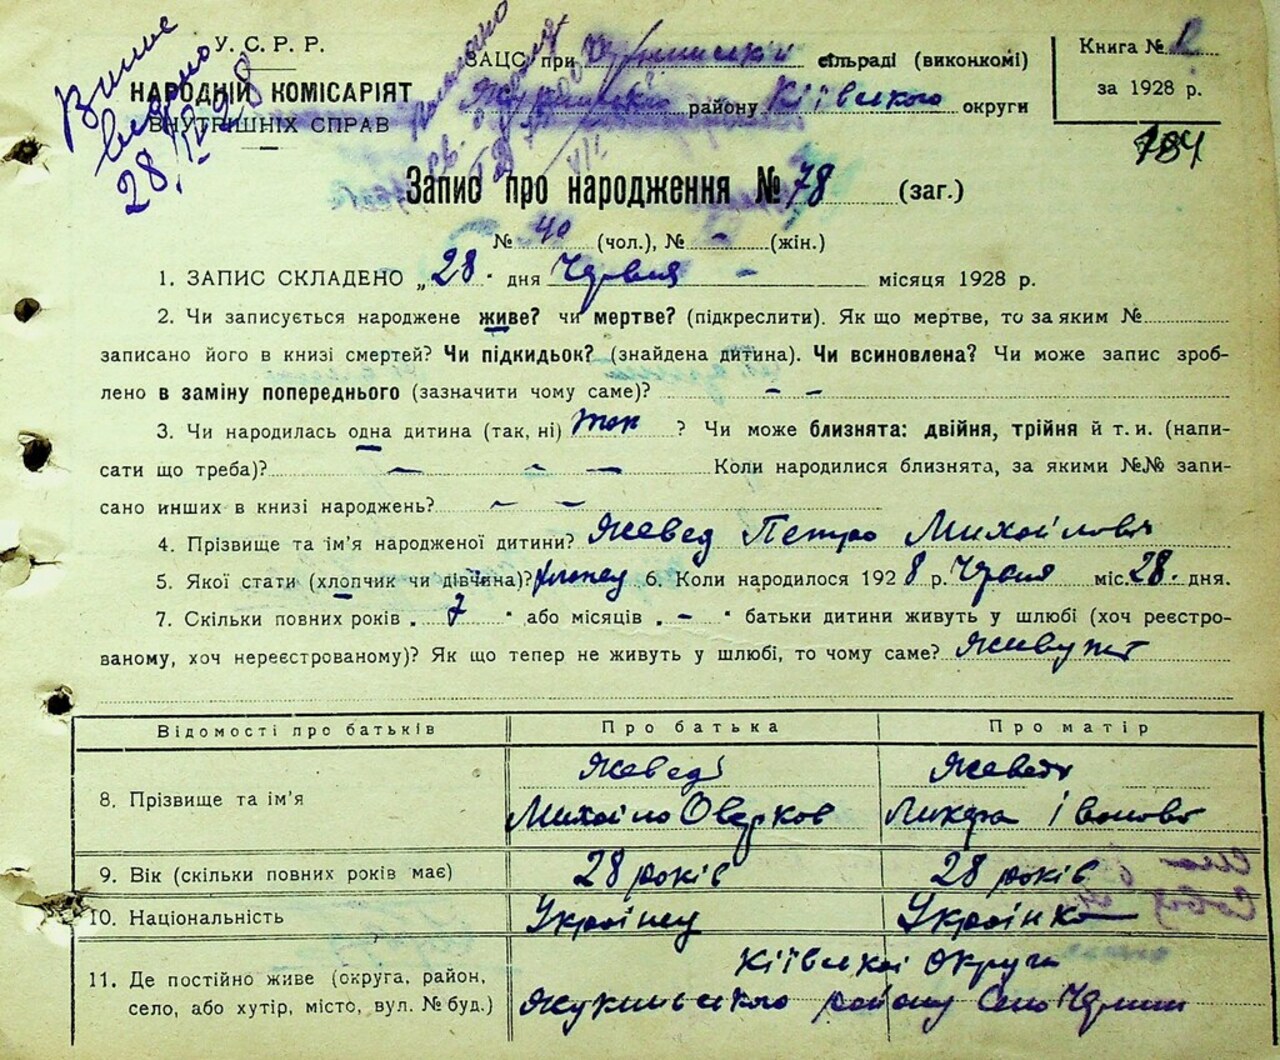 Виписано
28/IV 28
У. С. Р. Р.
НАРОДНІЙ КОМІСАРІЯТ
ВНУТРІШНІХ СПРАВ
ЗАЦС при сільраді (виконкомі)
району Київського округи
Книга № 2
за 1928 р.
184
Запис про народження № 78 (заг.)
№ 40 (чол.), № - (жін.)
1. ЗАПИС СКЛАДЕНО „28" дня Червня - місяця 1928 р.
2. Чи записується народжене живе? чи мертве? (підкреслити). Як що мертве, то за яким №
записано його в книзі смертей? Чи підкидьок? (знайдена дитина). Чи всиновлена? Чи може запис зроб-
лено в заміну попереднього (зазначити чому саме)? - -
3. Чи народилась одна дитина (так, ні) так ? Чи може близнята: двійня, трійня й т. и. (напи-
сати що треба)? - - - Коли народилися близнята, за якими №№ запи-
сано инших в книзі народжень? - -
4. Прізвище та ім'я народженої дитини? Жевед Петро Михайлович
5. Якої стати (хлопчик чи дівчина)? 6. Коли народилося 1928 р. Червня міс. 28. дня.
7. Скільки повних років „7" або місяців „-" батьки дитини живуть у шлюбі (хоч реєстро-
ваному, хоч нереєстрованому)? Як що тепер не живуть у шлюбі, то чому саме? Живуть
Відомості про батьків Про батька Про матір
8. Прізвище та ім'я Жевед
Михайло Оверков Ликера Іванова
9. Вік (скільки повних років має) 28 років 28 років
10. Національність Українец Українка
11. Де постійно живе (округа, район, Київської Округи
село, або хутір, місто, вул. № буд.) району Село